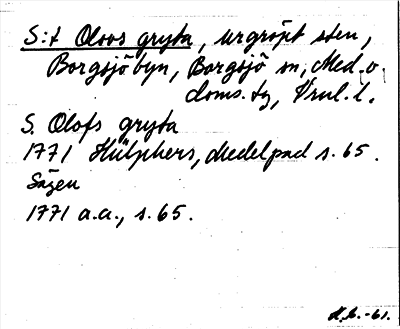 S:t Oloos gryta, urgröpt sten,
Borgsjöbyn, Borgsjö sn, Med. v.
doms. tg, Vnl. l.
S. Olofs gryta
1771 Hülphers, Medelpad s. 65.
Sägen
1771 a.a., s. 65.
-61.